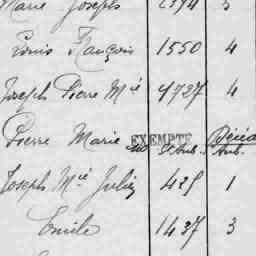 Marie Joseph 1374 3
Louis François 1550 4
Joseph Pierre Mie 4737 4
Pierre Marie EXEMPTE St Aub. Décéd Aub.
Joseph Mie Julien 425 1
Emile 1437 3